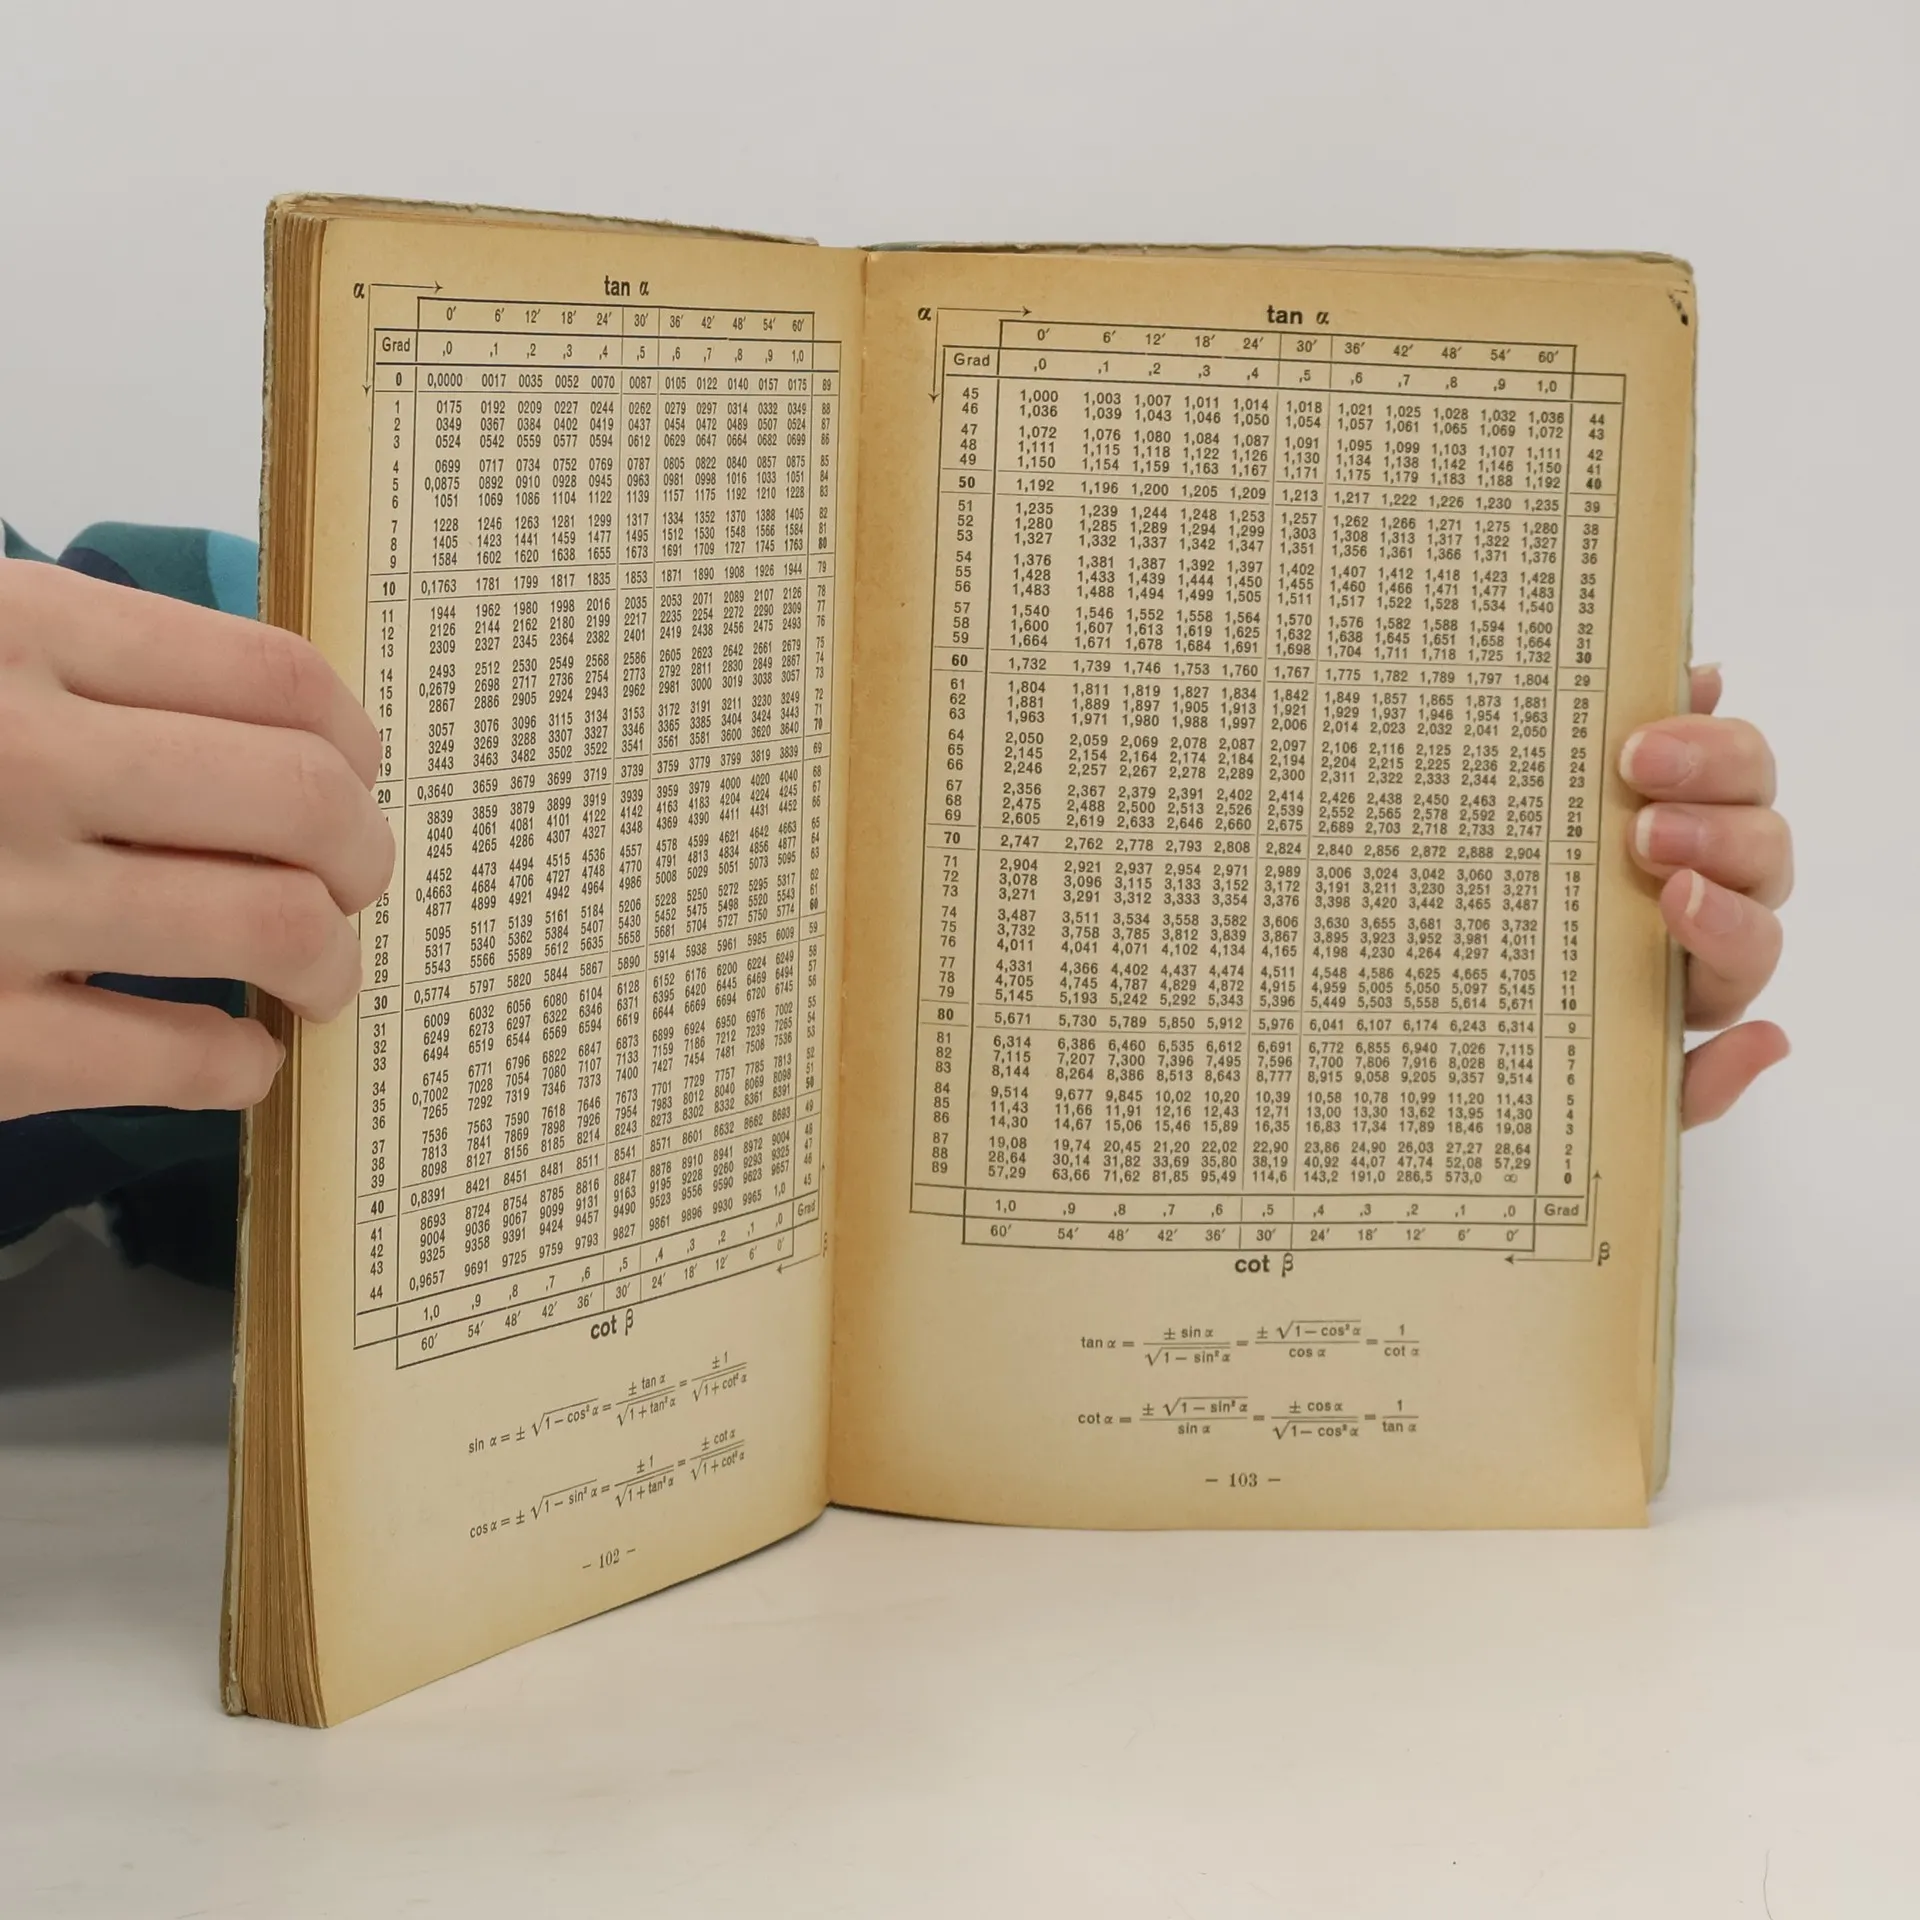 α tan α
0′ 6′ 12′ 18′ 24′ 30′ 36′ 42′ 48′ 54′ 60′
Grad ,0 ,1 ,2 ,3 ,4 ,5 ,6 ,7 ,8 ,9 1,0
0 0,0000 0017 0035 0052 0070 0087 0105 0122 0140 0157 0175 89
1 0175 0192 0209 0227 0244 0262 0279 0297 0314 0332 0349 88
2 0349 0367 0384 0402 0419 0437 0454 0472 0489 0507 0524 87
3 0524 0542 0559 0577 0594 0612 0629 0647 0664 0682 0699 86
4 0699 0717 0734 0752 0769 0787 0805 0822 0840 0857 0875 85
5 0,0875 0892 0910 0928 0945 0963 0981 0998 1016 1033 1051 84
6 1051 1069 1086 1104 1122 1139 1157 1175 1192 1210 1228 83
7 1228 1246 1263 1281 1299 1317 1334 1352 1370 1388 1405 82
8 1405 1423 1441 1459 1477 1495 1512 1530 1548 1566 1584 81
9 1584 1602 1620 1638 1655 1673 1691 1709 1727 1745 1763 80
10 0,1763 1781 1799 1817 1835 1853 1871 1890 1908 1926 1944 79
11 1944 1962 1980 1998 2016 2035 2053 2071 2089 2107 2126 78
12 2126 2144 2162 2180 2199 2217 2235 2254 2272 2290 2309 77
13 2309 2327 2345 2364 2382 2401 2419 2438 2456 2475 2493 76
14 2493 2512 2530 2549 2568 2586 2605 2623 2642 2661 2679 75
15 0,2679 2698 2717 2736 2754 2773 2792 2811 2830 2849 2867 74
16 2867 2886 2905 2924 2943 2962 2981 3000 3019 3038 3057 73
17 3057 3076 3096 3115 3134 3153 3172 3191 3211 3230 3249 72
18 3249 3269 3288 3307 3327 3346 3365 3385 3404 3424 3443 71
19 3443 3463 3482 3502 3522 3541 3561 3581 3600 3620 3640 70
20 0,3640 3659 3679 3699 3719 3739 3759 3779 3799 3819 3839 69
3839 3859 3879 3899 3919 3939 3959 3979 4000 4020 4040 68
4040 4061 4081 4101 4122 4142 4163 4183 4204 4224 4245 67
4245 4265 4286 4307 4327 4348 4369 4390 4411 4431 4452 66
4452 4473 4494 4515 4536 4557 4578 4599 4621 4642 4663 65
25 0,4663 4684 4706 4727 4748 4770 4791 4813 4834 4856 4877 64
26 4877 4899 4921 4942 4964 4986 5008 5029 5051 5073 5095 63
27 5095 5117 5139 5161 5184 5206 5228 5250 5272 5295 5317 62
28 5317 5340 5362 5384 5407 5430 5452 5475 5498 5520 5543 61
29 5543 5566 5589 5612 5635 5658 5681 5704 5727 5750 5774 60
30 0,5774 5797 5820 5844 5867 5890 5914 5938 5961 5985 6009 59
31 6009 6032 6056 6080 6104 6128 6152 6176 6200 6224 6249 58
32 6249 6273 6297 6322 6346 6371 6395 6420 6445 6469 6494 57
33 6494 6519 6544 6569 6594 6619 6644 6669 6694 6720 6745 56
34 6745 6771 6796 6822 6847 6873 6899 6924 6950 6976 7002 55
35 0,7002 7028 7054 7080 7107 7133 7159 7186 7212 7239 7265 54
36 7265 7292 7319 7346 7373 7400 7427 7454 7481 7508 7536 53
37 7536 7563 7590 7618 7646 7673 7701 7729 7757 7785 7813 52
38 7813 7841 7869 7898 7926 7954 7983 8012 8040 8069 8098 51
39 8098 8127 8156 8185 8214 8243 8273 8302 8332 8361 8391 50
40 0,8391 8421 8451 8481 8511 8541 8571 8601 8632 8662 8693 49
41 8693 8724 8754 8785 8816 8847 8878 8910 8941 8972 9004 48
42 9004 9036 9067 9099 9131 9163 9195 9228 9260 9293 9325 47
43 9325 9358 9391 9424 9457 9490 9523 9556 9590 9623 9657 46
44 0,9657 9691 9725 9759 9793 9827 9861 9896 9930 9965 1,0 45
1,0 ,9 ,8 ,7 ,6 ,5 ,4 ,3 ,2 ,1 ,0 Grad
60′ 54′ 48′ 42′ 36′ 30′ 24′ 18′ 12′ 6′ 0′
cot β
sin α = ± √1 − cos² α = ± tan α / √1 + tan² α = ± 1 / √1 + cot² α
cos α = ± √1 − sin² α = ± 1 / √1 + tan² α = ± cot α / √1 + cot² α
– 102 –
α tan α
0′ 6′ 12′ 18′ 24′ 30′ 36′ 42′ 48′ 54′ 60′
Grad ,0 ,1 ,2 ,3 ,4 ,5 ,6 ,7 ,8 ,9 1,0
45 1,000 1,003 1,007 1,011 1,014 1,018 1,021 1,025 1,028 1,032 1,036 44
46 1,036 1,039 1,043 1,046 1,050 1,054 1,057 1,061 1,065 1,069 1,072 43
47 1,072 1,076 1,080 1,084 1,087 1,091 1,095 1,099 1,103 1,107 1,111 42
48 1,111 1,115 1,118 1,122 1,126 1,130 1,134 1,138 1,142 1,146 1,150 41
49 1,150 1,154 1,159 1,163 1,167 1,171 1,175 1,179 1,183 1,188 1,192 40
50 1,192 1,196 1,200 1,205 1,209 1,213 1,217 1,222 1,226 1,230 1,235 39
51 1,235 1,239 1,244 1,248 1,253 1,257 1,262 1,266 1,271 1,275 1,280 38
52 1,280 1,285 1,289 1,294 1,299 1,303 1,308 1,313 1,317 1,322 1,327 37
53 1,327 1,332 1,337 1,342 1,347 1,351 1,356 1,361 1,366 1,371 1,376 36
54 1,376 1,381 1,387 1,392 1,397 1,402 1,407 1,412 1,418 1,423 1,428 35
55 1,428 1,433 1,439 1,444 1,450 1,455 1,460 1,466 1,471 1,477 1,483 34
56 1,483 1,488 1,494 1,499 1,505 1,511 1,517 1,522 1,528 1,534 1,540 33
57 1,540 1,546 1,552 1,558 1,564 1,570 1,576 1,582 1,588 1,594 1,600 32
58 1,600 1,607 1,613 1,619 1,625 1,632 1,638 1,645 1,651 1,658 1,664 31
59 1,664 1,671 1,678 1,684 1,691 1,698 1,704 1,711 1,718 1,725 1,732 30
60 1,732 1,739 1,746 1,753 1,760 1,767 1,775 1,782 1,789 1,797 1,804 29
61 1,804 1,811 1,819 1,827 1,834 1,842 1,849 1,857 1,865 1,873 1,881 28
62 1,881 1,889 1,897 1,905 1,913 1,921 1,929 1,937 1,946 1,954 1,963 27
63 1,963 1,971 1,980 1,988 1,997 2,006 2,014 2,023 2,032 2,041 2,050 26
64 2,050 2,059 2,069 2,078 2,087 2,097 2,106 2,116 2,125 2,135 2,145 25
65 2,145 2,154 2,164 2,174 2,184 2,194 2,204 2,215 2,225 2,236 2,246 24
66 2,246 2,257 2,267 2,278 2,289 2,300 2,311 2,322 2,333 2,344 2,356 23
67 2,356 2,367 2,379 2,391 2,402 2,414 2,426 2,438 2,450 2,463 2,475 22
68 2,475 2,488 2,500 2,513 2,526 2,539 2,552 2,565 2,578 2,592 2,605 21
69 2,605 2,619 2,633 2,646 2,660 2,675 2,689 2,703 2,718 2,733 2,747 20
70 2,747 2,762 2,778 2,793 2,808 2,824 2,840 2,856 2,872 2,888 2,904 19
71 2,904 2,921 2,937 2,954 2,971 2,989 3,006 3,024 3,042 3,060 3,078 18
72 3,078 3,096 3,115 3,133 3,152 3,172 3,191 3,211 3,230 3,251 3,271 17
73 3,271 3,291 3,312 3,333 3,354 3,376 3,398 3,420 3,442 3,465 3,487 16
74 3,487 3,511 3,534 3,558 3,582 3,606 3,630 3,655 3,681 3,706 3,732 15
75 3,732 3,758 3,785 3,812 3,839 3,867 3,895 3,923 3,952 3,981 4,011 14
76 4,011 4,041 4,071 4,102 4,134 4,165 4,198 4,230 4,264 4,297 4,331 13
77 4,331 4,366 4,402 4,437 4,474 4,511 4,548 4,586 4,625 4,665 4,705 12
78 4,705 4,745 4,787 4,829 4,872 4,915 4,959 5,005 5,050 5,097 5,145 11
79 5,145 5,193 5,242 5,292 5,343 5,396 5,449 5,503 5,558 5,614 5,671 10
80 5,671 5,730 5,789 5,850 5,912 5,976 6,041 6,107 6,174 6,243 6,314 9
81 6,314 6,386 6,460 6,535 6,612 6,691 6,772 6,855 6,940 7,026 7,115 8
82 7,115 7,207 7,300 7,396 7,495 7,596 7,700 7,806 7,916 8,028 8,144 7
83 8,144 8,264 8,386 8,513 8,643 8,777 8,915 9,058 9,205 9,357 9,514 6
84 9,514 9,677 9,845 10,02 10,20 10,39 10,58 10,78 10,99 11,20 11,43 5
85 11,43 11,66 11,91 12,16 12,43 12,71 13,00 13,30 13,62 13,95 14,30 4
86 14,30 14,67 15,06 15,46 15,89 16,35 16,83 17,34 17,89 18,46 19,08 3
87 19,08 19,74 20,45 21,20 22,02 22,90 23,86 24,90 26,03 27,27 28,64 2
88 28,64 30,14 31,82 33,69 35,80 38,19 40,92 44,07 47,74 52,08 57,29 1
89 57,29 63,66 71,62 81,85 95,49 114,6 143,2 191,0 286,5 573,0 ∞ 0
1,0 ,9 ,8 ,7 ,6 ,5 ,4 ,3 ,2 ,1 ,0 Grad
60′ 54′ 48′ 42′ 36′ 30′ 24′ 18′ 12′ 6′ 0′
cot β β
tan α = ± sin α / √1 − sin² α = ± √1 − cos² α / cos α = 1 / cot α
cot α = ± √1 − sin² α / sin α = ± cos α / √1 − cos² α = 1 / tan α
– 103 –